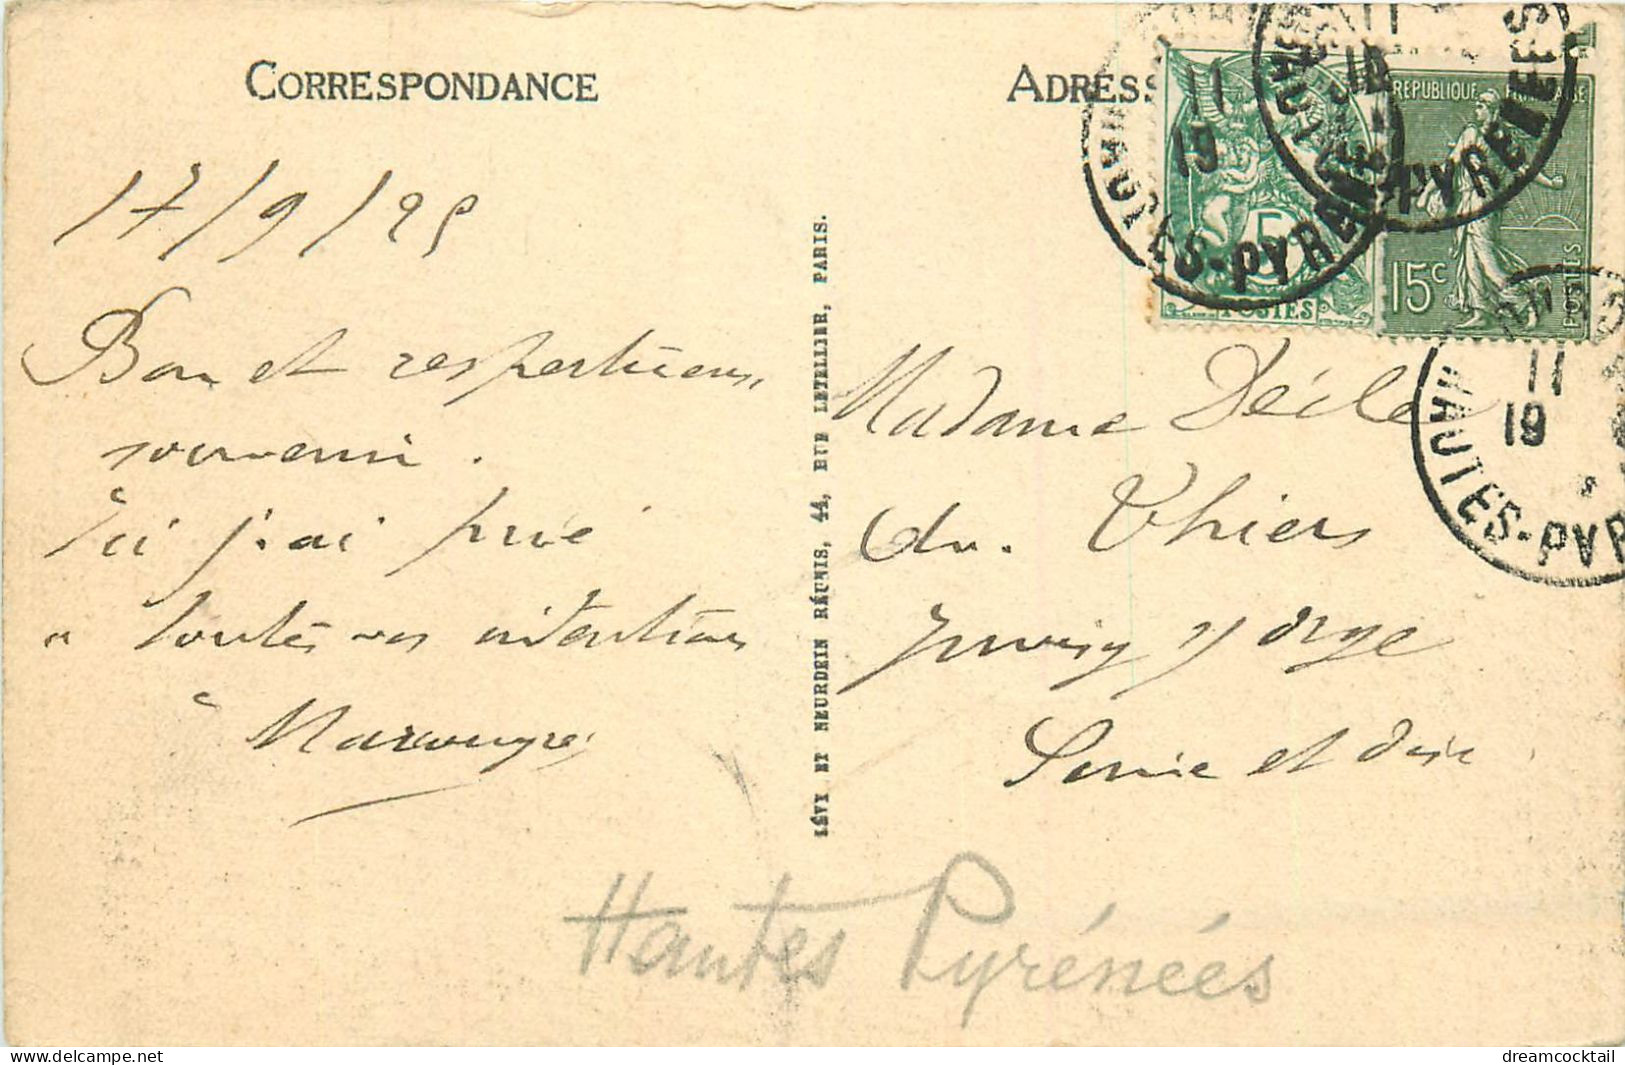 CORRESPONDANCE
17/9/25
Bon et respectueux
souvenir.
Ici j'ai prié
à toutes vos intentions
à
LÉVY ET NEURDEIN RÉUNIS, 44, RUE LETELLIER, PARIS.
ADRESS
RÉPUBLIQUE FRANÇAISE
5c
POSTES
15c
POSTES
11
19
HAUTES-PYRÉNÉES
11
18
HAUTES-PYRENEES
11
19
HAUTES-PYR
Madame
du Thiers
Juvisy s/ Orge
Seine et Oise
Hautes Pyrénées
dreamcocktail